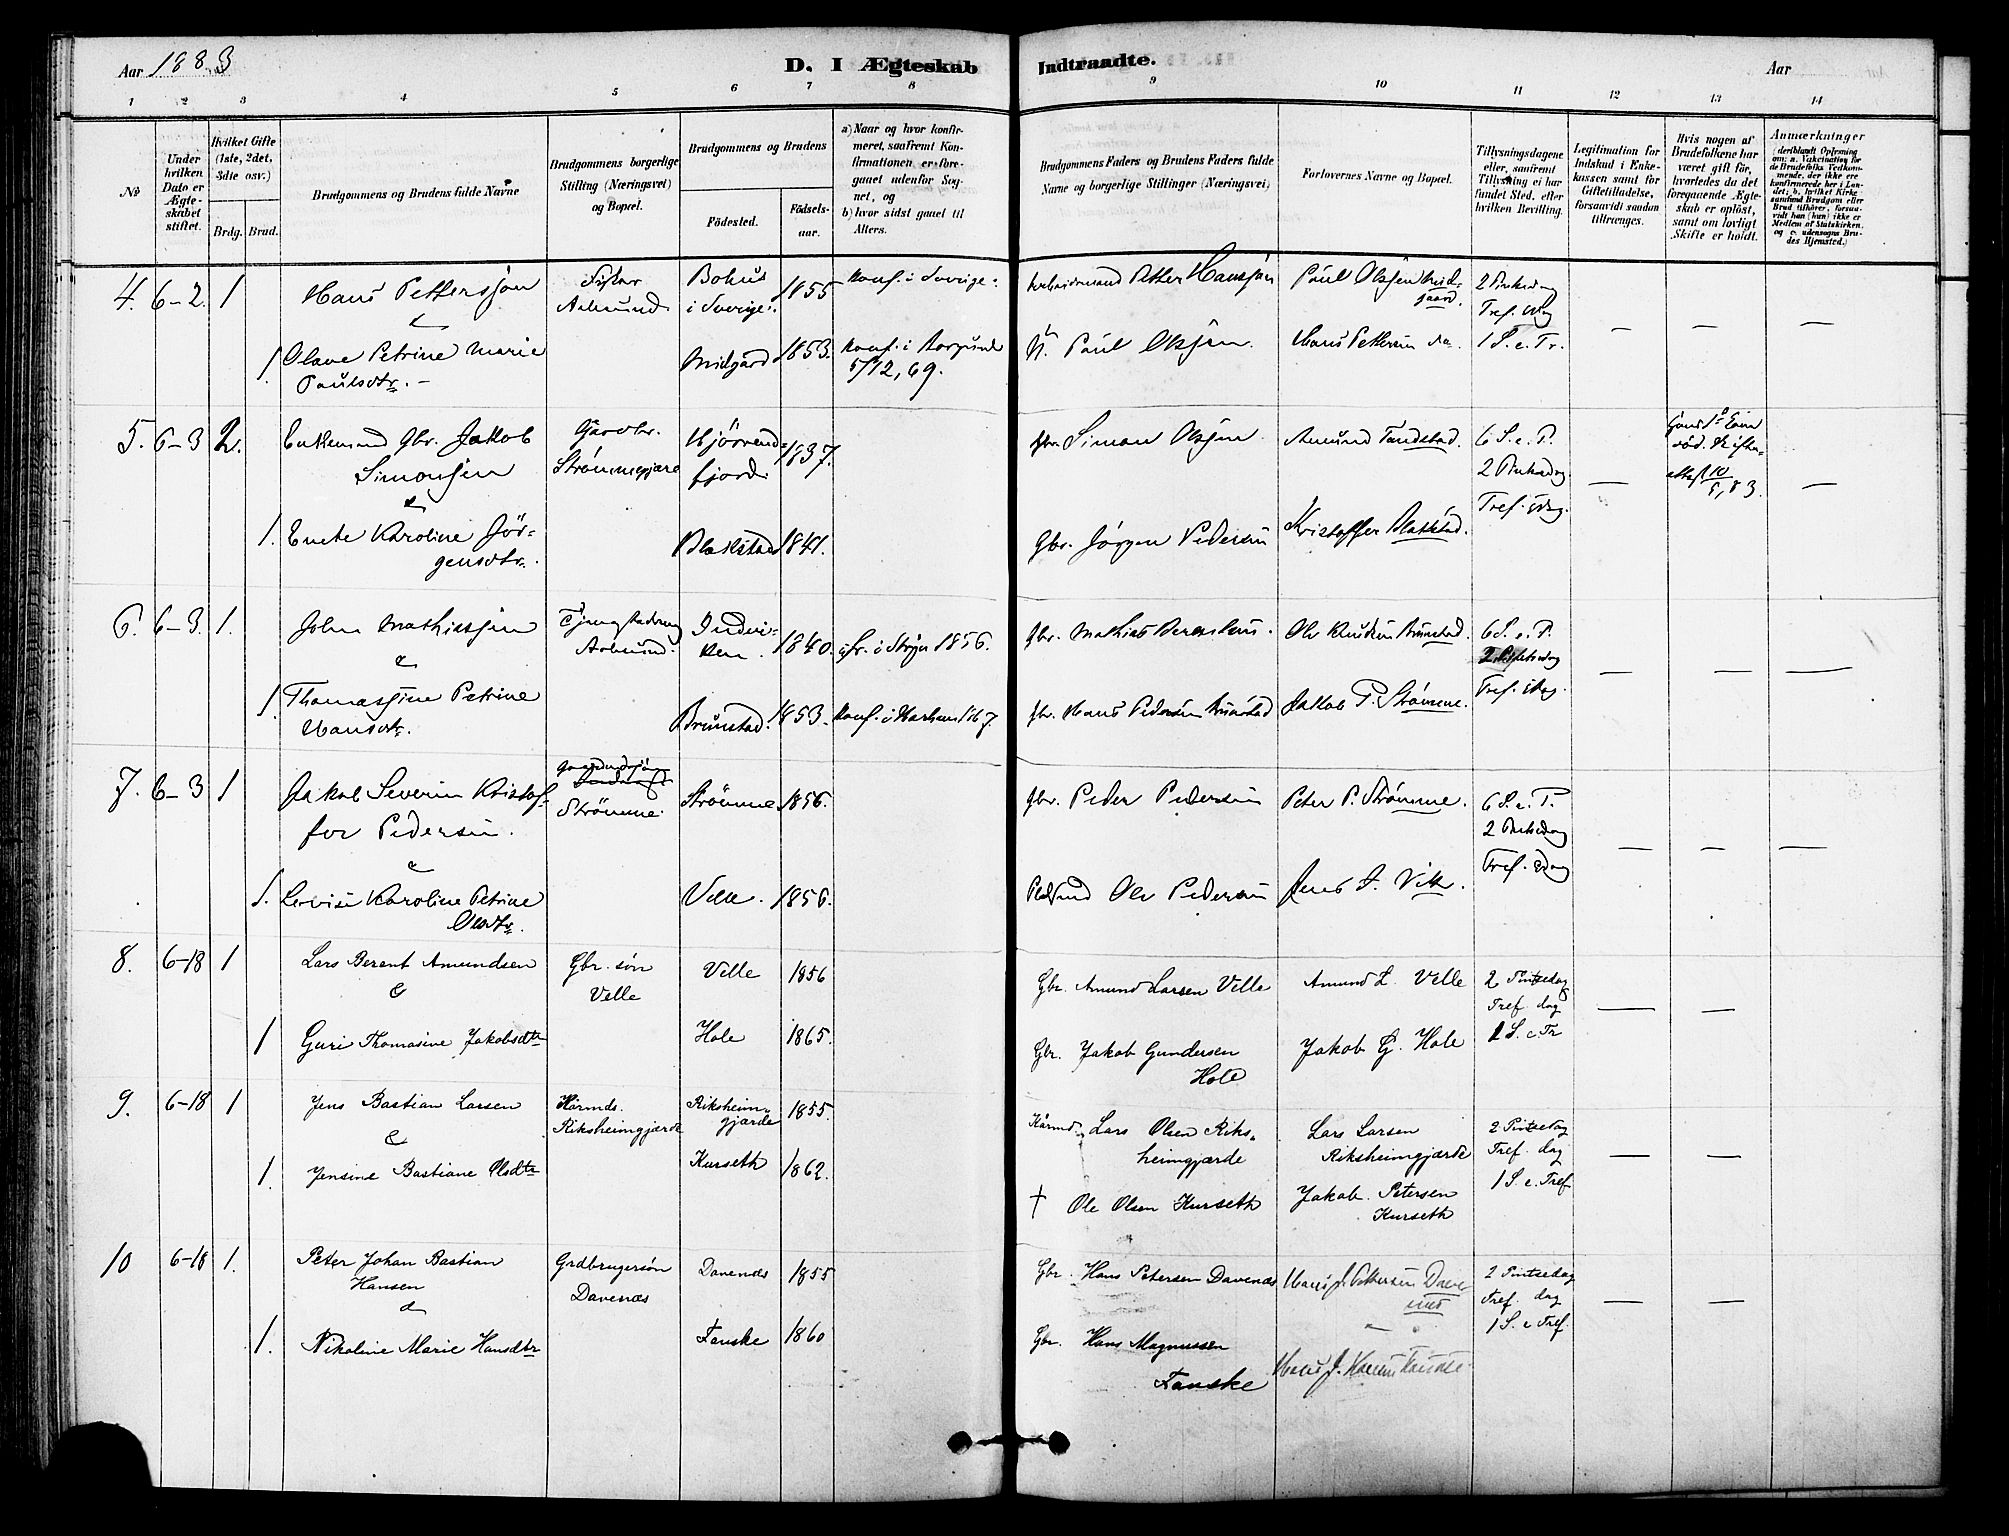 Aar 1883
D. I Ægteskab Indtraadte.
Aar
1 2 3 4 5 6 7 8 9 10 11 12 13 14
№
Under hvilken Dato er Ægteskabet stiftet.
Hvilket Gifte (1ste, 2det, 3die osv.)
Brdg. Brud.
Brudgommens og Brudens fulde Navne
Brudgommens borgerlige Stilling (Næringsvei) og Bopæl.
Brudgommens og Brudens
Fødested. Fødselsaar.
a) Naar og hvor konfirmeret, saafremt Konfirmationen er foregaaet udenfor Sognet, og
b) hvor sidst gaaet til Alters.
Brudgommens Faders og Brudens Faders fulde Navne og borgerlige Stillinger (Næringsvei)
Forlovernes Navne og Bopæl.
Tillysningsdagene eller, saafremt Tillysning ei har fundet Sted, efter hvilken Bevilling.
Legitimation for Indskud i Enkekassen samt for Giftetilladelse, forsaavidt saadan tiltrænges.
Hvis nogen af Brudefolkene har været gift før, hvorledes da det foregaaende Ægteskab er opløst, samt om lovligt Skifte er holdt.
Anmærkninger
(deriblandt Oplysning om: a. Vakcination for de Brudefolks Vedkommende, der ikke ere konfirmerede her i Landet; b. hvilket Kirkesamfund Brudgom eller Brud tilhører, forsaavidt han (hun) ikke er Medlem af Statskirken, og c. udensogns Brudes Hjemsted.)
4. 6–2. 1 Hans Petterssøn Fisker Aalesund. Bohus i Sverige. 1855 Konf. i Sverige. Arbeidsmand Petter Hanssøn Paul Olssøn Midgaard. 2 Pintsedag Tref. dag 1 S. e. Tr. — — —
&
1. Olave Petrine Marie Paulsdtr. – Midgård 1853. Konf. i Borgund 5/12, 69. Paul Olssøn. Hans Pettersen do.
5. 6–3 2. Enkemand Gbr. Jakob Simonsen Gårdbr. Strømmegjære Hjørrendfjord 1837. Gbr. Simon Olsøn. Amund Tandstad. 6 S. e. P. 2 Pintsedag Tref. dag. — —
&
1. Enete Karoline Jørgensdtr. Blakstad 1841. Gbr. Jørgen Pedersen Kristoffer Blakstad.
6. 6–3. 1. John Mathissen Aalesund. 1840. i Stryn 1856. Gbr. Mathias Ole Knudsen Brunstad. 6 S. e. P. 2 Pintsedag Tref. dag. — — —
&
1. Thomassine Petrine Hansdtr. Brunstad. 1853. Konf. i 1867. Gbr. Hans Pedersen Brunstad Jakob P. Strømme.
7. 6–3 1 Jakob Severin Kristoffer Pedersen. Strømme. Strømme 1856. Gbr. Peder Pedersen Peter P. Strømme. 6 S. e. P. 2 Pintsedag Tref. dag — — —
&
1. Lovise Karoline Petrine Olsdtr. Velle. 1856. Ole Pedersen Jens J. Vik.
8. 6–18 1 Lars Berent Amundsen Gbr. søn Velle Velle 1856 Gbr. Amund Larsen Velle Amund L. Velle 2 Pintsedag Tref. dag 1 S. e. Tr — —
&
1 Guri Thomasine Jakobsdtr Hole 1865. Gbr. Jakob Gundersen Hole Jakob G. Hole
9. 6–18 1 Jens Bastian Larsen Kårmd. Riksheimgjærde Riksheimgjærde 1855. Kårmd. Lars Olsen Riksheimgjærde Lars Larsen Riksheimgjærde 2 Pintsedag Tref. dag 1 S. e. Tref — —
&
1. Jensine Bastiane Olsdtr Kurseth 1862. † Ole Olsen Kurseth Jakob Petersen Kurseth
10 6–18 1. Peter Johan Bastian Hansen Grdbrugersøn Davenæs Davenæs 1855 Gbr. Hans Petersen Davenæs Hans J. Pettersen Davenæs 2 Pintsedag Tref. dag 1 S. e Tref. — —
&
1. Nikoline Marie Hansdtr Fauske 1860 Gbr. Hans Magnussen Fauske Hans J. Hansen Fauske.